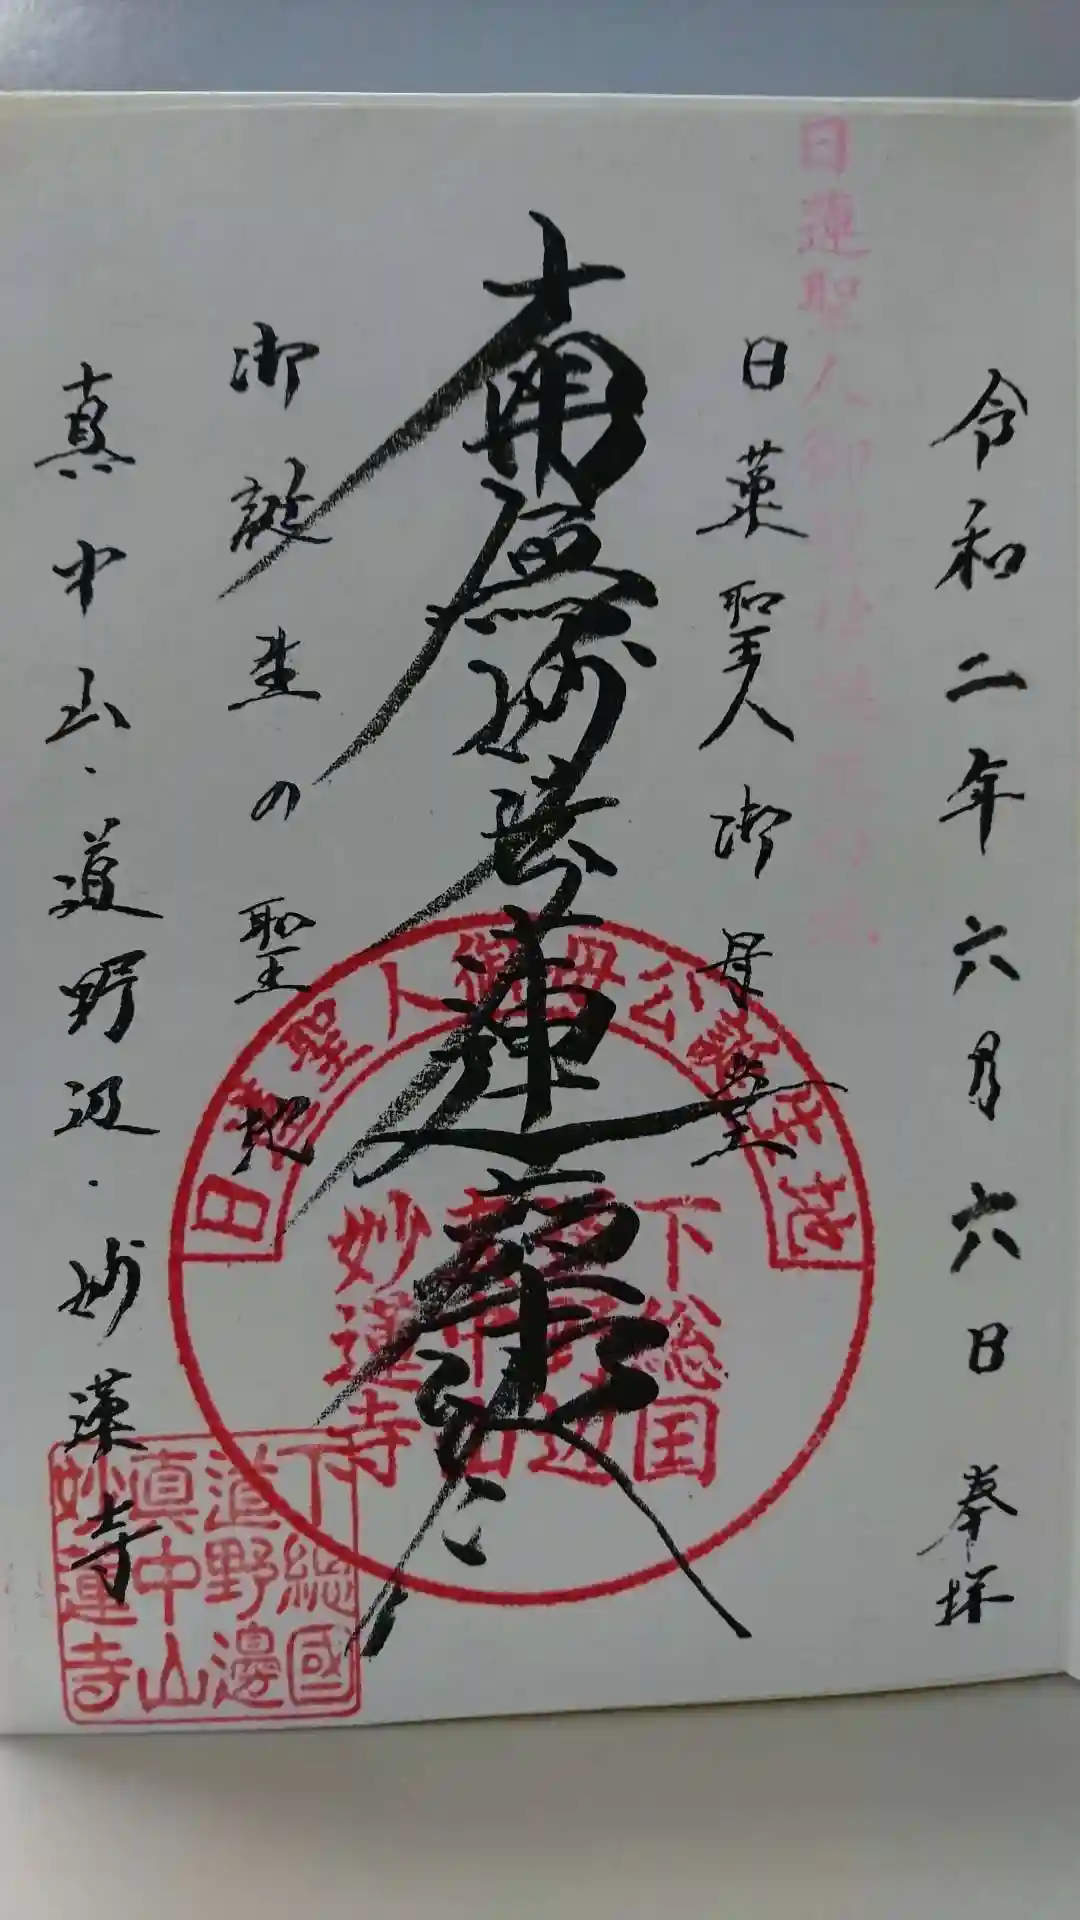 令和二年六月六日 奉拝
日蓮聖人御
日蓮聖人御母堂
南無妙法蓮華経
御誕生の聖地
真中山・道野辺・妙蓮寺
日蓮聖人御母公誕生地
下総国
道野辺
真中山
妙蓮寺
下總國
道野邊
眞中山
妙蓮寺